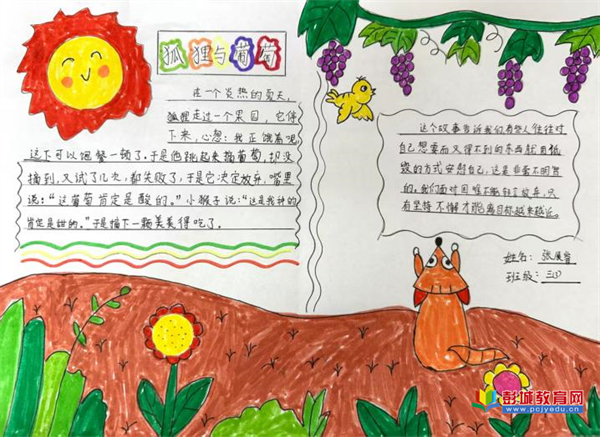 狐狸与葡萄
在一个炎热的夏天,
狐狸走过一个果园,它停
下来,心想:我正饿着呢
这下可以饱餐一顿了。于是他跳起来摘葡萄,却没
摘到,又试了几次,都失败了,于是它决定放弃,嘴里
说:“这葡萄肯定是酸的。”小猴子说:“这是我种的
肯定是甜的。”于是摘下一颗美美得吃了.
这个故事告诉我们有些人往往对
自己想要而又得不到的东西就用
的方式安慰自己,这是非常不明智
的。我们面对困难不能轻言放弃,只
有坚持不懈才能离目标越来越近。
姓名:张展睿
班级:三(1)
彭城教育网
www.pcjyedu.cn